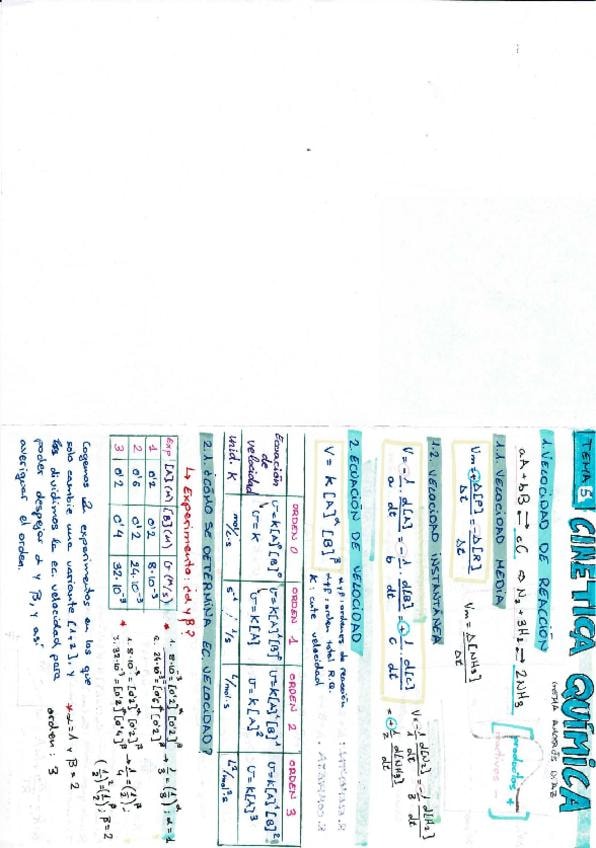 TEMA 5 CINÉTICA QUÍMICA
1. VELOCIDAD DE REACCIÓN
aA + bB ⇄ cC ⇒ N₂ + 3H₂ → 2NH₃
productos +
reactivos -
1.1. VELOCIDAD MEDIA
Vm = +Δ[P]/Δt = -Δ[R]/Δt
Vm = Δ[NH₃]/Δt
1.2. VELOCIDAD INSTANTÁNEA
V = -1/a · d[A]/dt = -1/b · d[B]/dt = +1/c · d[C]/dt
V = -1/1 d[N₂]/dt = -1/3 d[H₂]/dt = +1/2 d[NH₃]/dt
2. ECUACIÓN DE VELOCIDAD
V = K [A]^α [B]^β
α y β: órdenes de reacción
α+β: orden total R.Q.
K: cnte velocidad
ORDEN 0 ORDEN 1 ORDEN 2 ORDEN 3
Ecuación de velocidad
v=K[A]⁰[B]⁰ v=K[A]¹[B]⁰ v=K[A]¹[B]¹ v=K[A]¹[B]²
v=K v=K[A] v=K[A]² v=K[A]³
unid. K mol/L·s s⁻¹ / 1/s L/mol·s L²/mol²s
2.1. ¿CÓMO SE DETERMINA EC. VELOCIDAD?
↳ Experimento: ¿α y β?
Exp [A](M) [B](M) v(M/s)
1 0'2 0'2 8·10⁻³
2 0'6 0'2 24·10⁻³
3 0'2 0'4 32·10⁻³
* 1. 8·10⁻³=[0'2]^α[0'2]^β
2. 24·10⁻³=[0'6]^α[0'2]^β → 1/3 = (1/3)^α; α=1
* 1. 8·10⁻³=[0'2]^α[0'2]^β
3. 32·10⁻³=[0'2]^α[0'4]^β → 1/4 = (1/2)^β;
(1/2)²=(1/2)^β; β=2
Cogemos 2 experimentos en los que
solo cambie una variante [1 y 2], y
los dividimos la ec. velocidad, para
poder despejar α y β, y así
averiguar el orden.
* α=1 y β=2
orden: 3